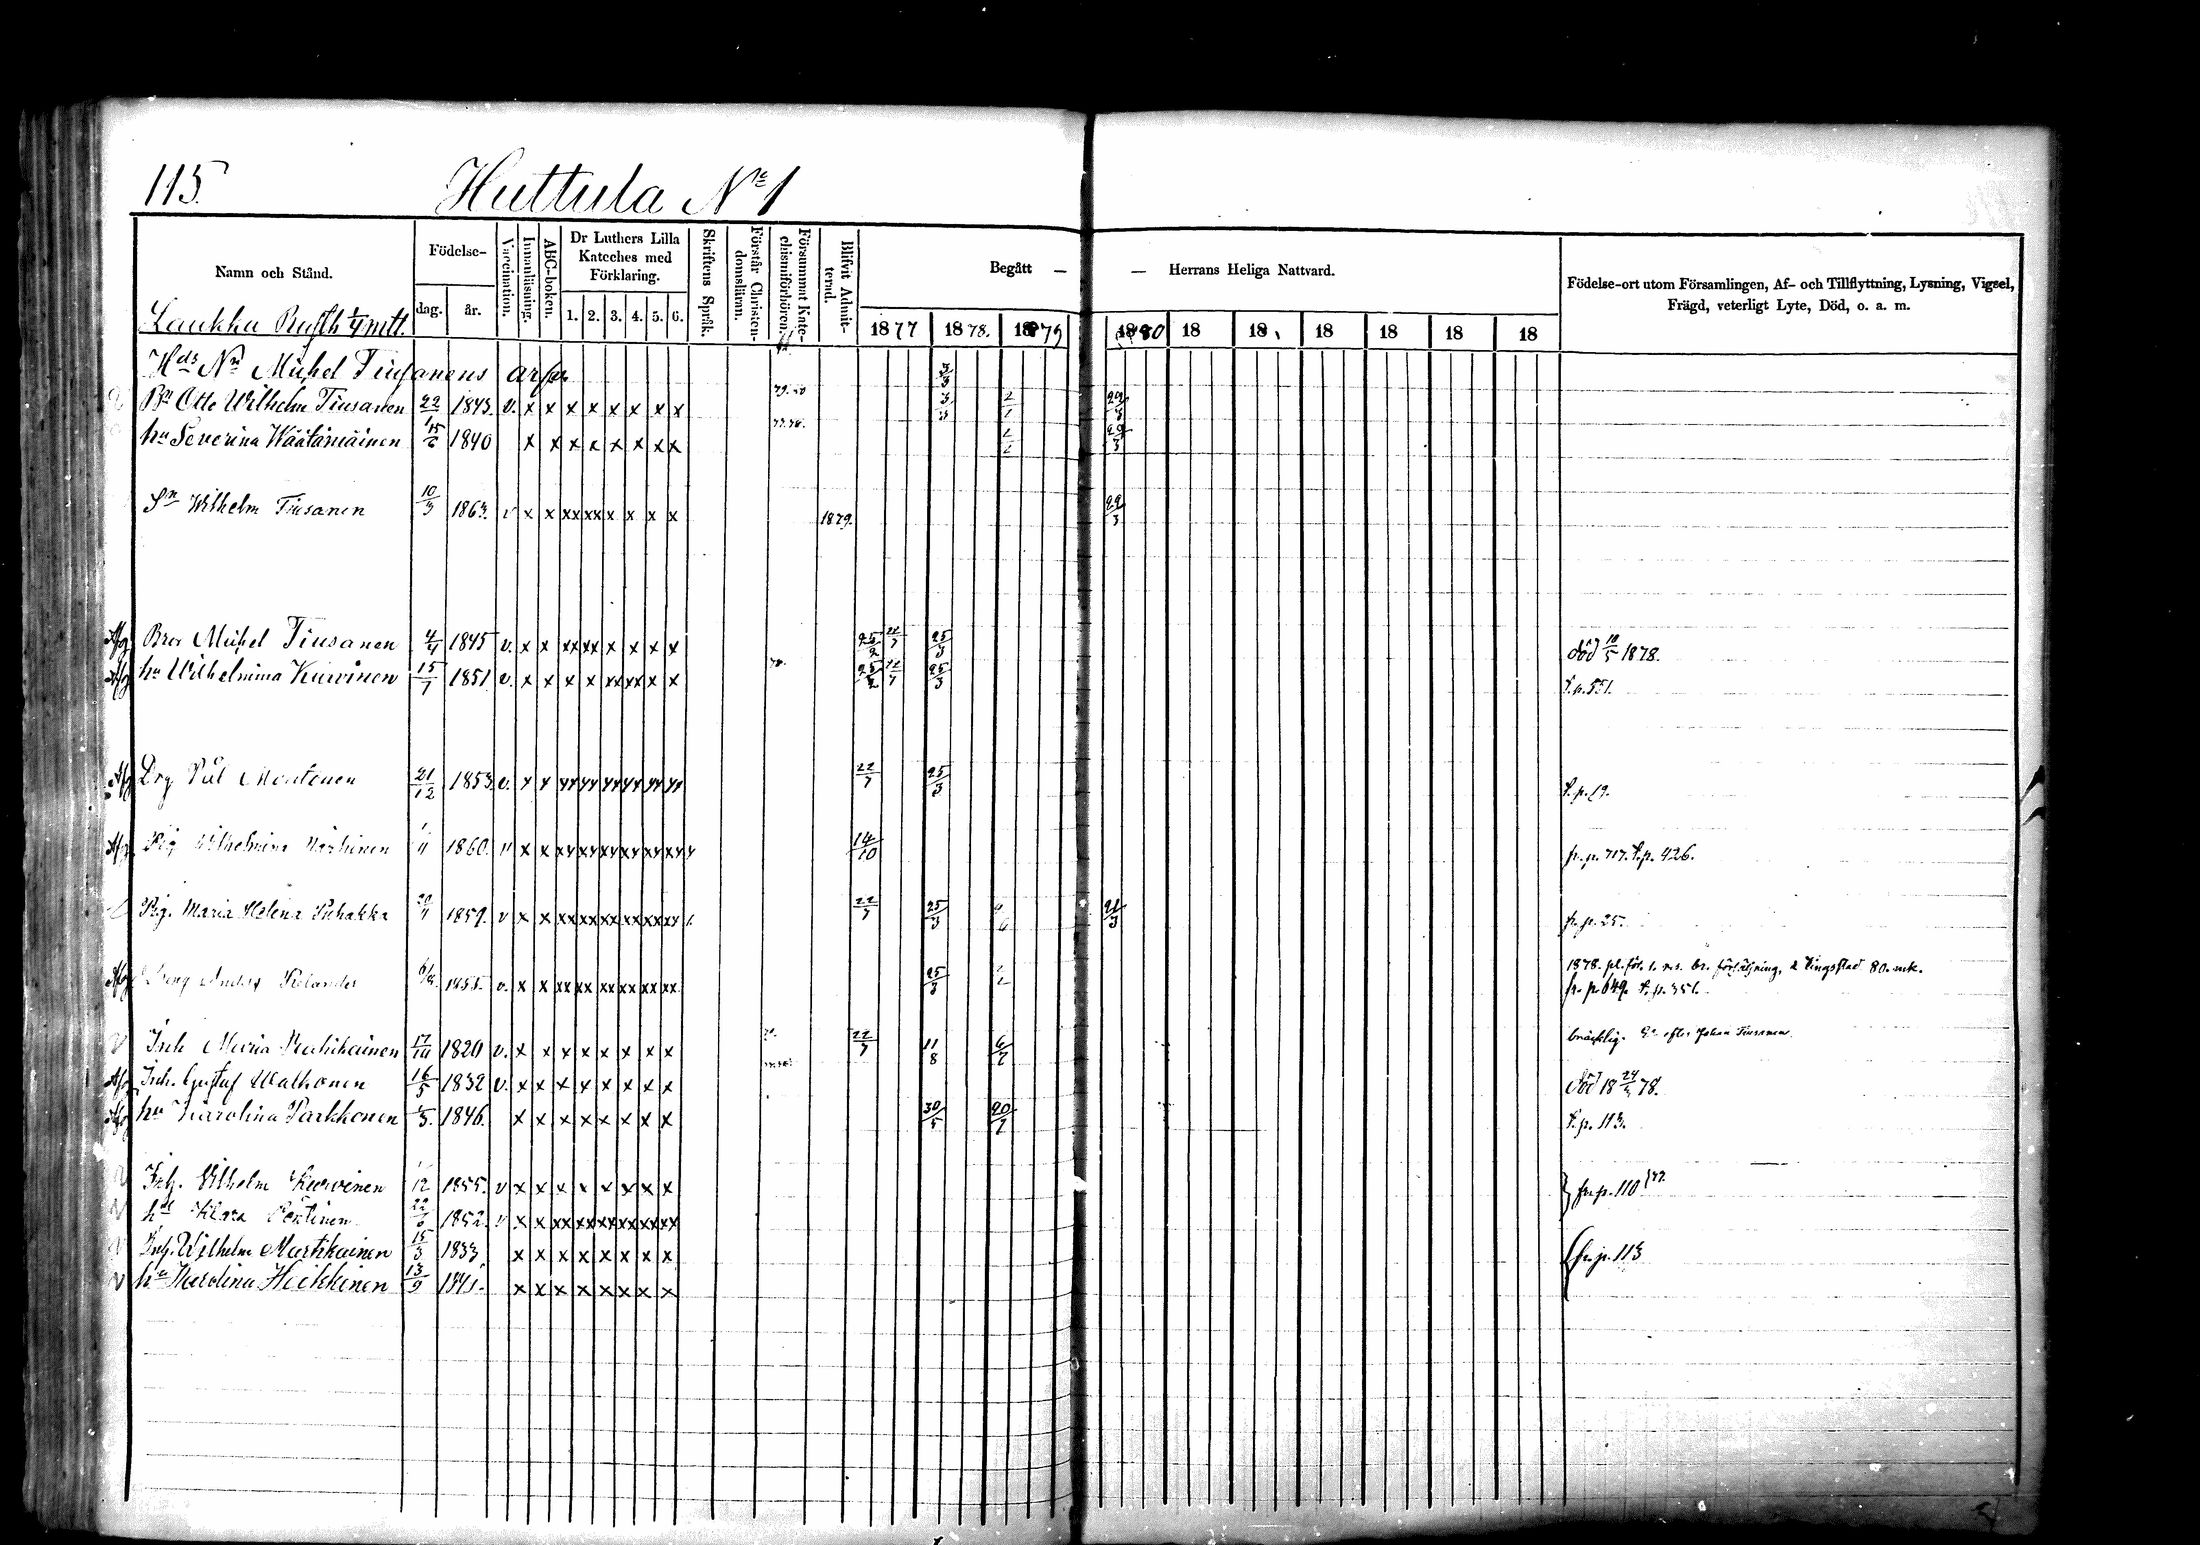 115.
Huttula No 1
Namn och Stånd.
Födelse-
dag.
år.
Vaccination.
Innanläsning.
ABC-boken.
Dr Luthers Lilla Kateches med Förklaring.
1. 2. 3. 4. 5. 6.
Skriftens Språk.
Förstår Christendomsläran.
Försummat Katechismiförhören.
Blifvit Admitterad.
Begått — — Herrans Heliga Nattvard.
1877 1878. 1879 1880 18 18 18 18 18 18
Födelse-ort utom Församlingen, Af- och Tillflyttning, Lysning, Vigsel,
Frägd, veterligt Lyte, Död, o. a. m.
Laukka 1/4 mtl.
Michel Tiusanens arfvr 3/3
Bn Otto Wilhelm Tiusanen 22/1 1843. v. x x x x x x x x 3/3 2/1 29/3
hu Severina Wäätämäinen 15/6 1840 x x x x x x x x 29/3
Sn Wilhelm Tiusanen 10/3 1863. v x x xx xx x x x x 1879. 29/3
Afg Bror Michel Tiusanen 4/4 1845 v. x x xx xx x x x x 25/2 22/7 25/3 död 10/5 1878.
Afg hu Wilhelmina Kurvinen 15/7 1851 v. x x x x xx xx x x 78. 25/2 22/7 25/3 t.p. 551.
Afg Drg Pål Montonen 21/12 1853. v. x x xx xx xx xx xx xx 22/7 25/3 t.p. 19.
Afg Pig Wilhelmina 1860. v x x xx xx xx xx xx xx 14/10 fr. p. 717. t.p. 426.
Pig. Maria Helena Puhakka 1859. v x x xx xx xx xx xx xx 22/7 25/3 21/3 fr. p. 25.
Afg Anders 1855. v. x x xx xx xx xx xx xx 25/3 1878. pl. för 1. res. br. försäljning, & tingsstad 80. mk.
fr. p. 649. t.p. 351.
Inh Maria 17/10 1820 v. x x x x x x x x 22/7 11/8 6/7 bräcklig. efter Johan Tiusanen
Afg Inh. Gustaf Walhonen 16/5 1832 v. x x x x x x x x död 18 24/ 78.
Afg hu Karolina Parkkonen 1846. x x x x x x x x 30/5 20/7 t.p. 113.
Inh. Vilhelm Kurvinen 1/12 1855. v x x x x x x x x fr. p. 110
hu Klara Pöntinen 22/6 1852. v x x xx xx xx xx xx xx
Inh. Wilhelm Martikainen 15/3 1833 x x x x x x x x fr. p. 113
hu Karolina Heikkinen 13/9 1841. x x x x x x x x